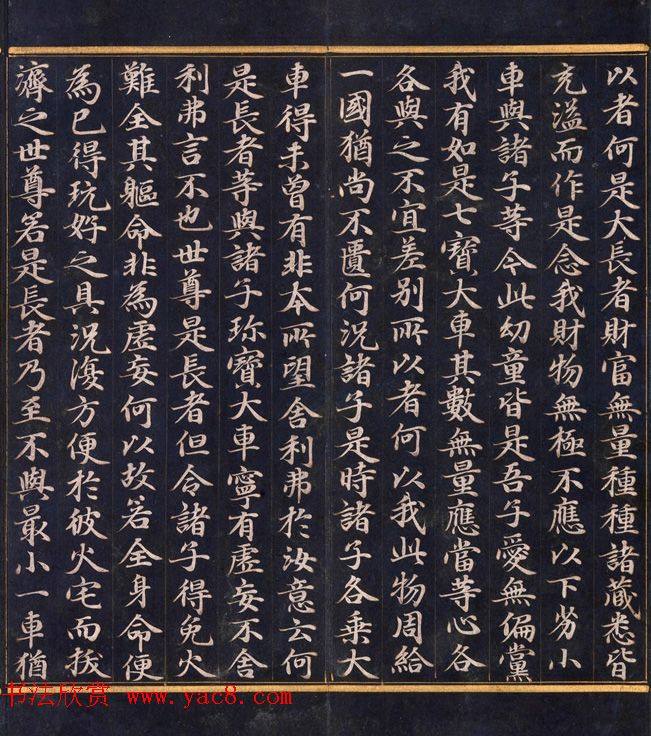 以者何是大長者財富無量種種諸藏悉皆
充溢而作是念我財物無極不應以下劣小
車與諸子等今此幼童皆是吾子愛無偏黨
我有如是七寶大車其數無量應當等心各
各與之不宜差別所以者何以我此物周給
一國猶尚不匱何況諸子是時諸子各乘大
車得未曾有非本所望舍利弗於汝意云何
是長者等與諸子珎寶大車寧有虛妄不舍
利弗言不也世尊是長者但令諸子得免火
難全其軀命非為虛妄何以故若全身命便
為已得玩好之具況復方便於彼火宅而拔
濟之世尊若是長者乃至不與最小一車猶
书法欣赏 www.yac8.com